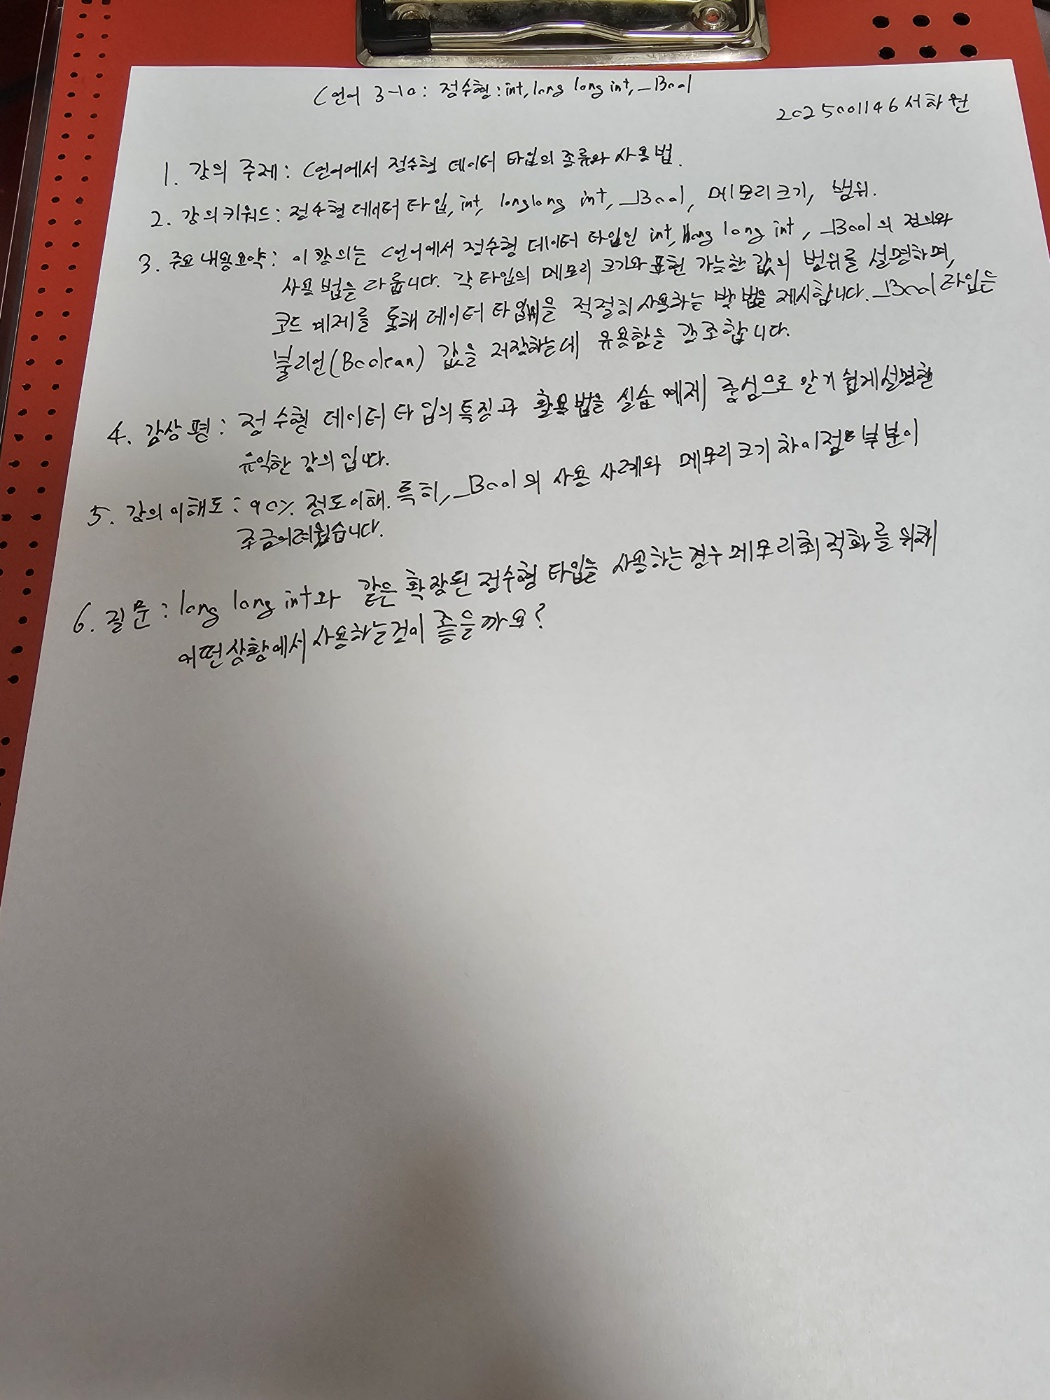 C언어 3-10: 정수형: int, long long int, _Bool
2025001146 서차원
1. 강의 주제: C언어에서 정수형 데이터 타입의 종류와 사용법.
2. 강의키워드: 정수형 데이터 타입, int, longlong int, _Bool, 메모리크기, 범위.
3. 주요 내용요약: 이 강의는 C언어에서 정수형 데이터 타입인 int, long long int, _Bool의 정의와
사용법을 다룹니다. 각 타입의 메모리 크기와 표현 가능한 값의 범위를 설명하며,
코드 예제를 통해 데이터 타입을 적절히 사용하는 방법을 제시합니다. _Bool 타입은
불리언(Boolean) 값을 저장하는데 유용함을 강조합니다.
4. 감상평: 정수형 데이터 타입의 특징과 활용법을 실습 예제 중심으로 알기 쉽게설명한
유익한 강의입니다.
5. 강의이해도: 90% 정도이해. 특히, _Bool의 사용 사례와 메모리크기 차이점 부분이
조금어려웠습니다.
6. 질문: long long int와 같은 확장된 정수형 타입을 사용하는경우 메모리최적화를 위해
어떤상황에서 사용하는것이 좋을까요?